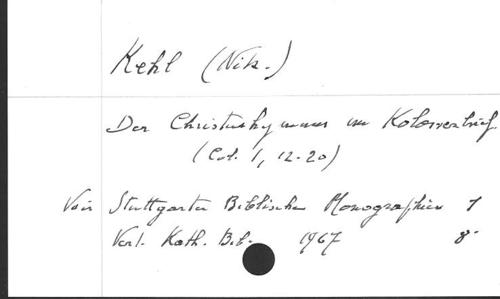 Kehl (Nik.)
Der Christushymnus im Kolosserbrief
(Col. 1, 12-20)
Voir Stuttgarter Biblische Monographien 1
Verl. Kath. Bib. 1967 8°